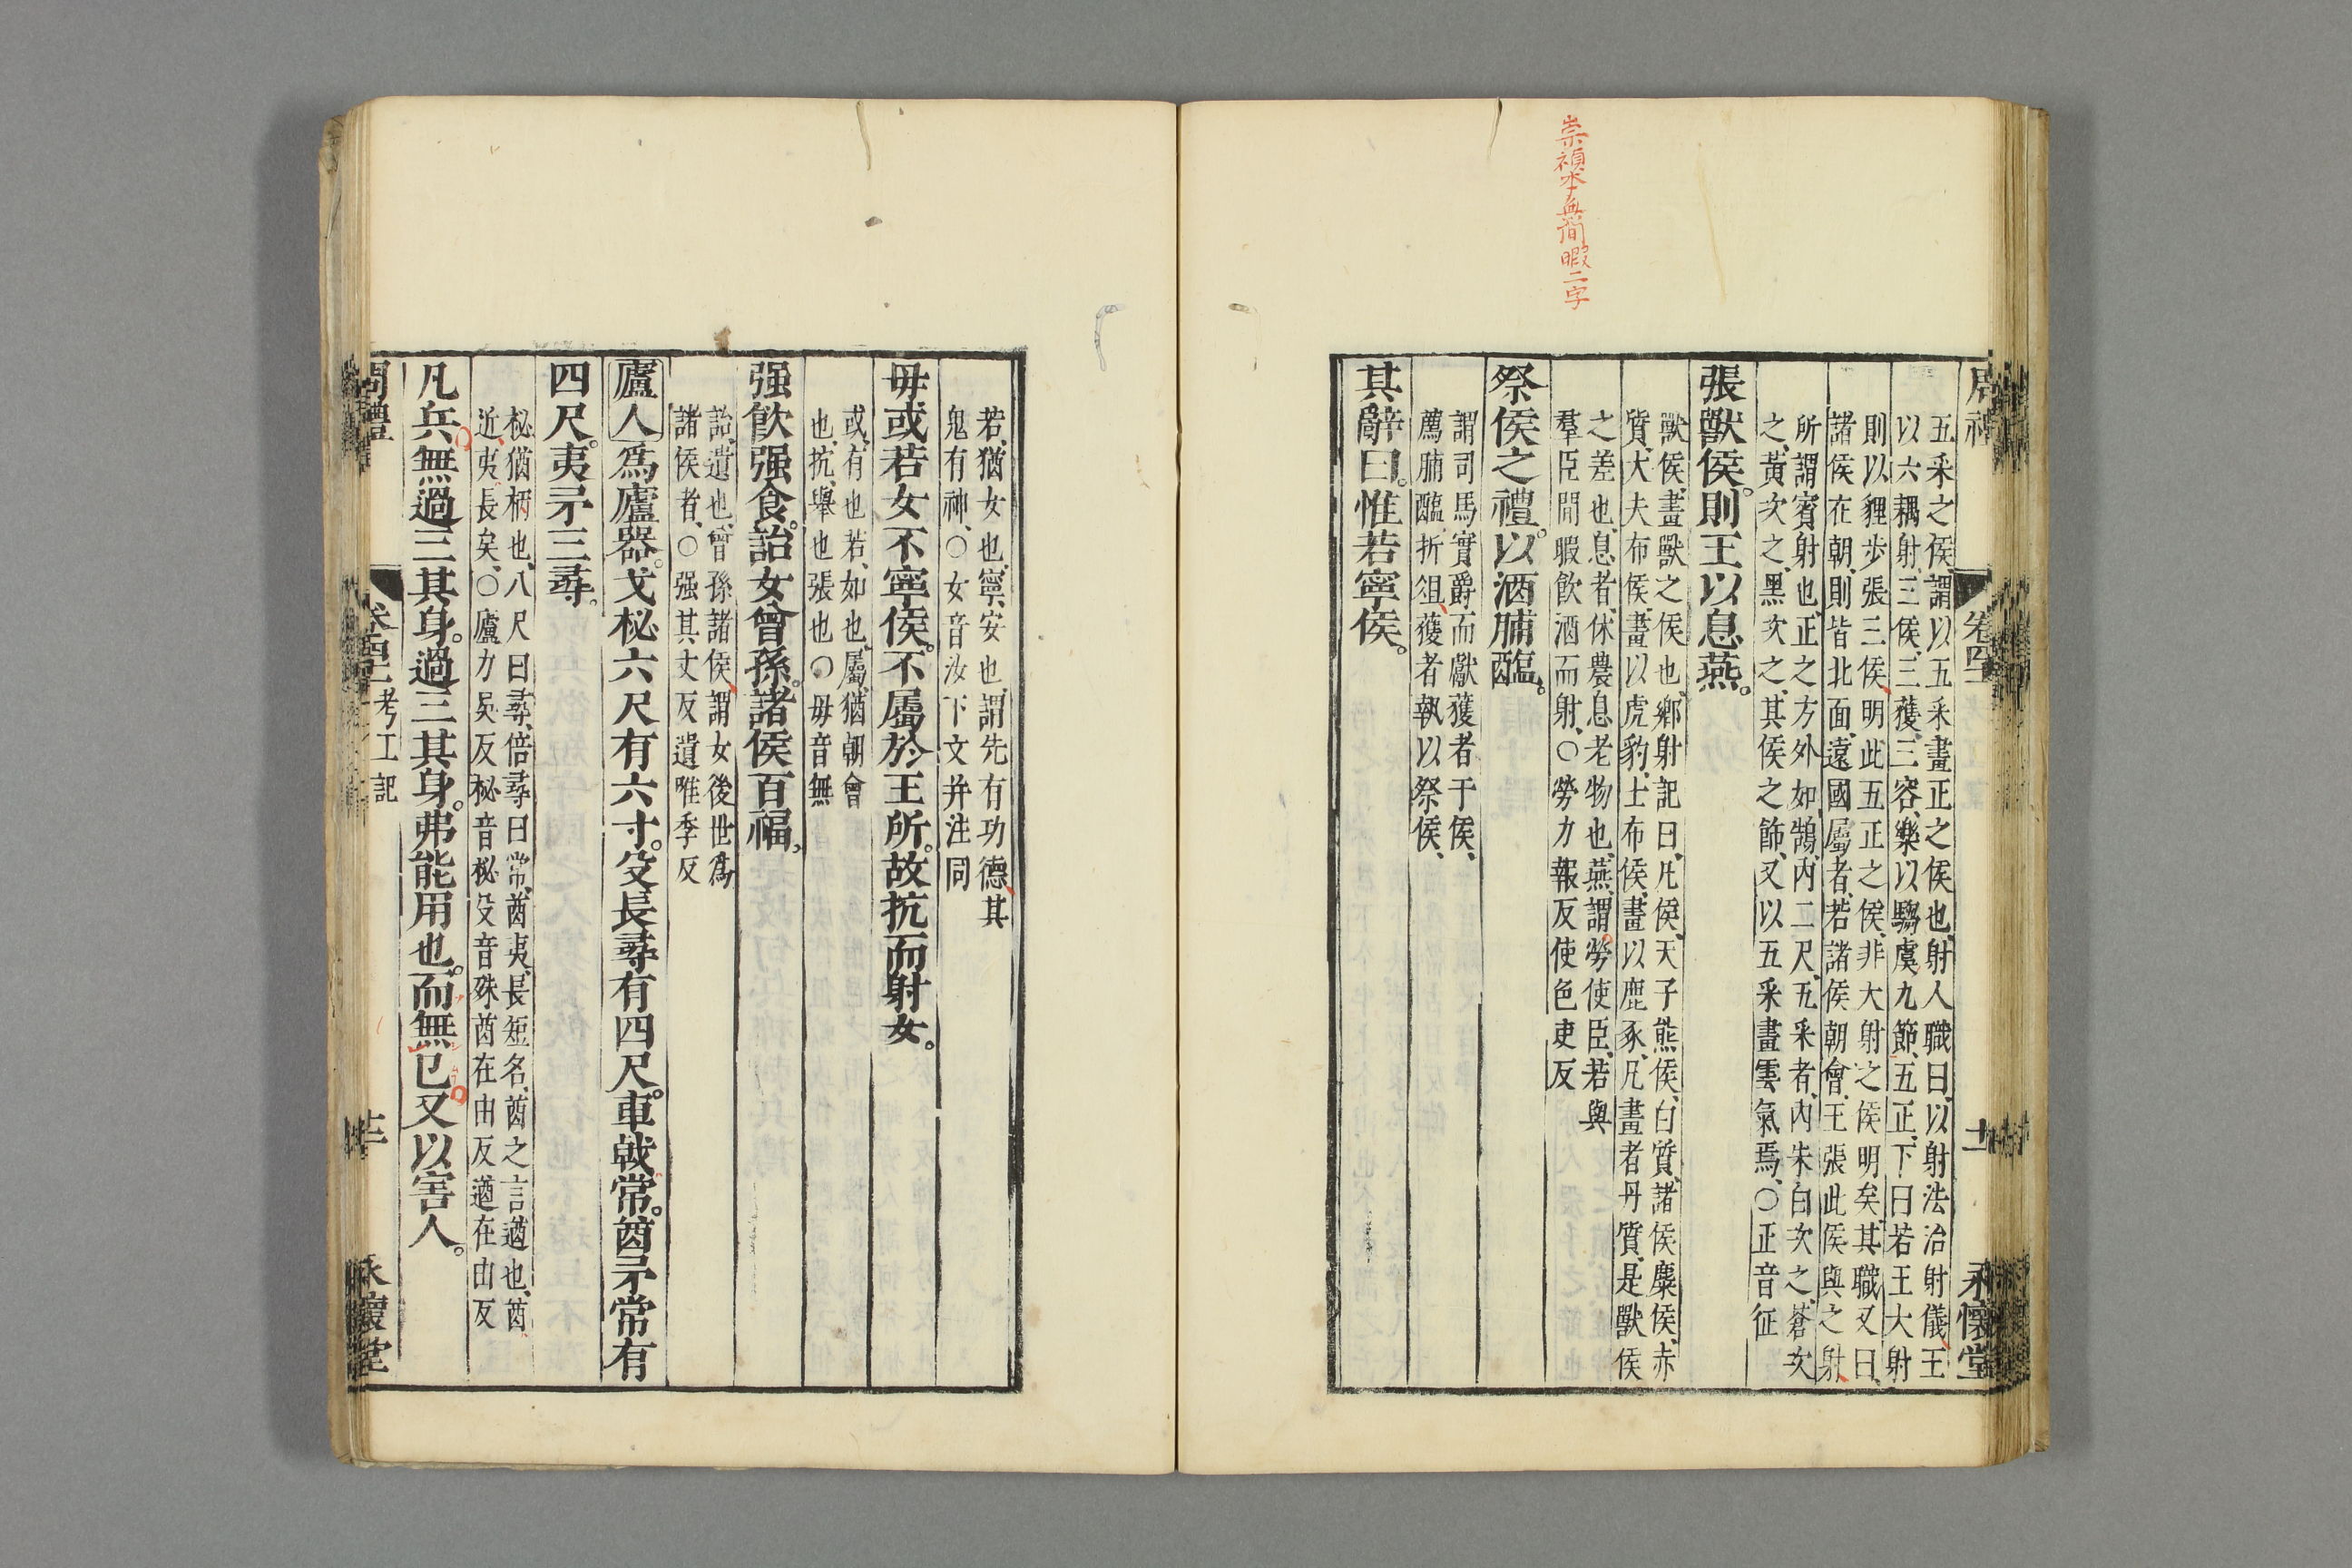 崇禎本無閒暇二字
五采之侯、謂以五采畫正之侯也、射人職曰、以射法治射儀、王
以六耦射、三侯三獲、三容、樂以騶虞、九節、五正、下曰若王大射
則以貍步張三侯、明此五正之侯、非大射之侯明矣、其職又曰、
諸侯在朝、則皆北面、遠國屬者、若諸侯朝會、王張此侯與之射、
所謂賓射也、正之方外如鵠、內二尺、五采者、內朱白次之、蒼次
之、黃次之、黑次之、其侯之飾、又以五采畫雲氣焉、○正音征
張獸侯。則王以息燕。
獸侯、畫獸之侯也、鄉射記曰、凡侯、天子熊侯、白質、諸侯麋侯、赤
質、大夫布侯、畫以虎豹、士布侯、畫以鹿豕、凡畫者丹質、是獸侯
之差也、息者、休農息老物也、燕、謂勞使臣、若與
羣臣閒暇飲酒而射、○勞力報反使色吏反
祭侯之禮。以酒脯醢。
謂司馬實爵而獻獲者于侯、
薦脯醢、折俎、獲者執以祭侯、
其辭曰。惟若寧侯。
若、猶女也、寧、安也、謂先有功德、其
鬼有神、○女音汝下文并注同
毋或若女不寧侯。不屬於王所。故抗而射女。
或、有也若、如也、屬、猶朝會
也、抗、舉也張也○毋音無
强飲强食。詒女曾孫。諸侯百福。
詒、遺也、曾孫諸侯、謂女後世爲
諸侯者、○强其丈反遺唯季反
廬人爲廬器。戈柲六尺有六寸。殳長尋有四尺。車戟常。酋矛常有
四尺。夷矛三尋。
柲猶柄也、八尺曰尋、倍尋曰常、酋夷、長短名、酋之言遒也、酋
近夷長矣、○廬力吳反柲音祕殳音殊酋在由反遒在由反
凡兵無過三其身。過三其身。弗能用也。而無已。又以害人。
周禮
卷四十二
考工記
永懷堂